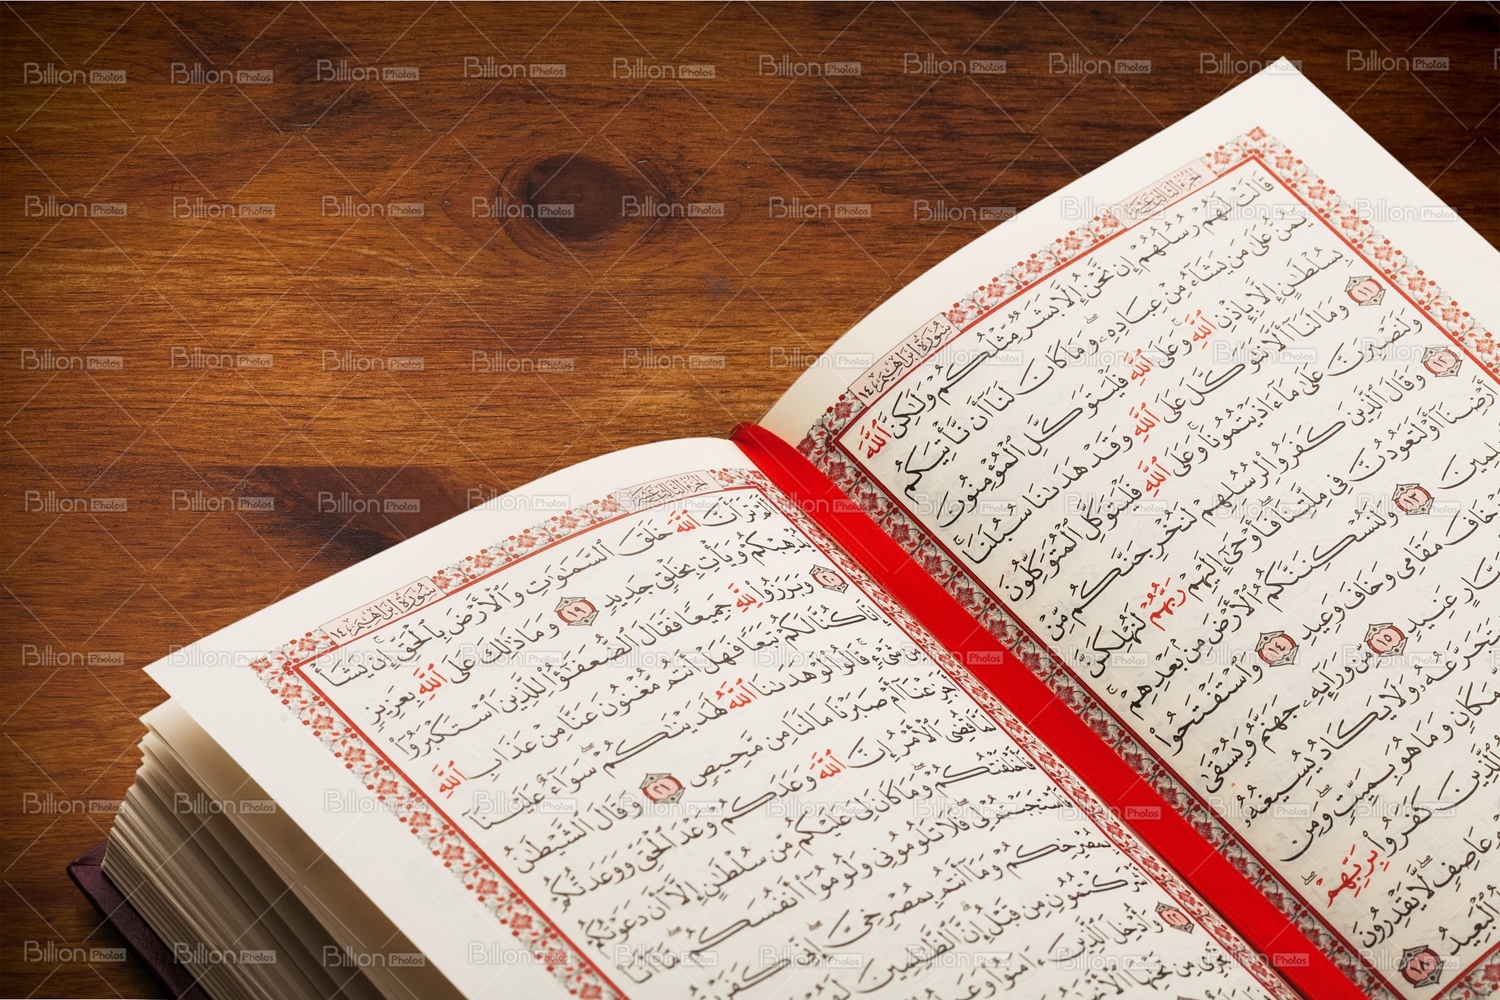 الجزء الثالث عشر
سورة ابراهيم ١٤
قَالَتْ لَهُمْ رُسُلُهُمْ إِن نَّحْنُ إِلَّا بَشَرٌ مِّثْلُكُمْ وَلَٰكِنَّ ٱللَّهَ
يَمُنُّ عَلَىٰ مَن يَشَآءُ مِنْ عِبَادِهِۦ ۖ وَمَا كَانَ لَنَآ أَن نَّأْتِيَكُم
بِسُلْطَٰنٍ إِلَّا بِإِذْنِ ٱللَّهِ وَعَلَى ٱللَّهِ فَلْيَتَوَكَّلِ ٱلْمُؤْمِنُونَ
١١ وَمَا لَنَآ أَلَّا نَتَوَكَّلَ عَلَى ٱللَّهِ وَقَدْ هَدَىٰنَا سُبُلَنَا
وَلَنَصْبِرَنَّ عَلَىٰ مَآ ءَاذَيْتُمُونَا وَعَلَى ٱللَّهِ فَلْيَتَوَكَّلِ ٱلْمُتَوَكِّلُونَ
١٢ وَقَالَ ٱلَّذِينَ كَفَرُوا۟ لِرُسُلِهِمْ لَنُخْرِجَنَّكُم مِّنْ
أَرْضِنَآ أَوْ لَتَعُودُنَّ فِى مِلَّتِنَا فَأَوْحَىٰٓ إِلَيْهِمْ رَبُّهُمْ لَنُهْلِكَنَّ
١٣ وَلَنُسْكِنَنَّكُمُ ٱلْأَرْضَ مِنۢ بَعْدِهِمْ
خَافَ مَقَامِى وَخَافَ وَعِيدِ ١٤ وَٱسْتَفْتَحُوا۟
عَنِيدٍ ١٥ مِّن وَرَآئِهِۦ جَهَنَّمُ وَيُسْقَىٰ
وَلَا يَكَادُ يُسِيغُهُۥ
مَكَانٍ وَمَا هُوَ بِمَيِّتٍ وَمِن
ٱلَّذِينَ كَفَرُوا۟ بِرَبِّهِمْ
عَاصِفٍ لَّا يَقْدِرُونَ
ٱلْبَعِيدُ ١٨
الجزء الثالث عشر
سورة ابراهيم ١٤
تَرَ أَنَّ ٱللَّهَ خَلَقَ ٱلسَّمَٰوَٰتِ وَٱلْأَرْضَ بِٱلْحَقِّ ۚ إِن يَشَأْ
يُذْهِبْكُمْ وَيَأْتِ بِخَلْقٍ جَدِيدٍ ١٩ وَمَا ذَٰلِكَ عَلَى ٱللَّهِ بِعَزِيزٍ
٢٠ وَبَرَزُوا۟ لِلَّهِ جَمِيعًا فَقَالَ ٱلضُّعَفَٰٓؤُا۟ لِلَّذِينَ ٱسْتَكْبَرُوٓا۟
إِنَّا كُنَّا لَكُمْ تَبَعًا فَهَلْ أَنتُم مُّغْنُونَ عَنَّا مِنْ عَذَابِ ٱللَّهِ
مِن شَىْءٍ ۚ قَالُوا۟ لَوْ هَدَىٰنَا ٱللَّهُ لَهَدَيْنَٰكُمْ ۖ سَوَآءٌ عَلَيْنَآ
أَجَزِعْنَآ أَمْ صَبَرْنَا مَا لَنَا مِن مَّحِيصٍ ٢١ وَقَالَ ٱلشَّيْطَٰنُ
لَمَّا قُضِىَ ٱلْأَمْرُ إِنَّ ٱللَّهَ وَعَدَكُمْ وَعْدَ ٱلْحَقِّ وَوَعَدتُّكُمْ
فَأَخْلَفْتُكُمْ ۖ وَمَا كَانَ لِىَ عَلَيْكُم مِّن سُلْطَٰنٍ إِلَّآ أَن دَعَوْتُكُمْ
فَٱسْتَجَبْتُمْ لِى ۖ فَلَا تَلُومُونِى وَلُومُوٓا۟ أَنفُسَكُم ۖ مَّآ أَنَا۠
بِمُصْرِخِكُمْ وَمَآ أَنتُم بِمُصْرِخِىَّ ۖ إِنِّى كَفَرْتُ
أَشْرَكْتُمُونِ مِن قَبْلُ ۗ إِنَّ ٱلظَّٰلِمِينَ لَهُمْ
٢٢ وَأُدْخِلَ ٱلَّذِينَ ءَامَنُوا۟
تَجْرِى مِن تَحْتِهَا ٱلْأَنْهَٰرُ